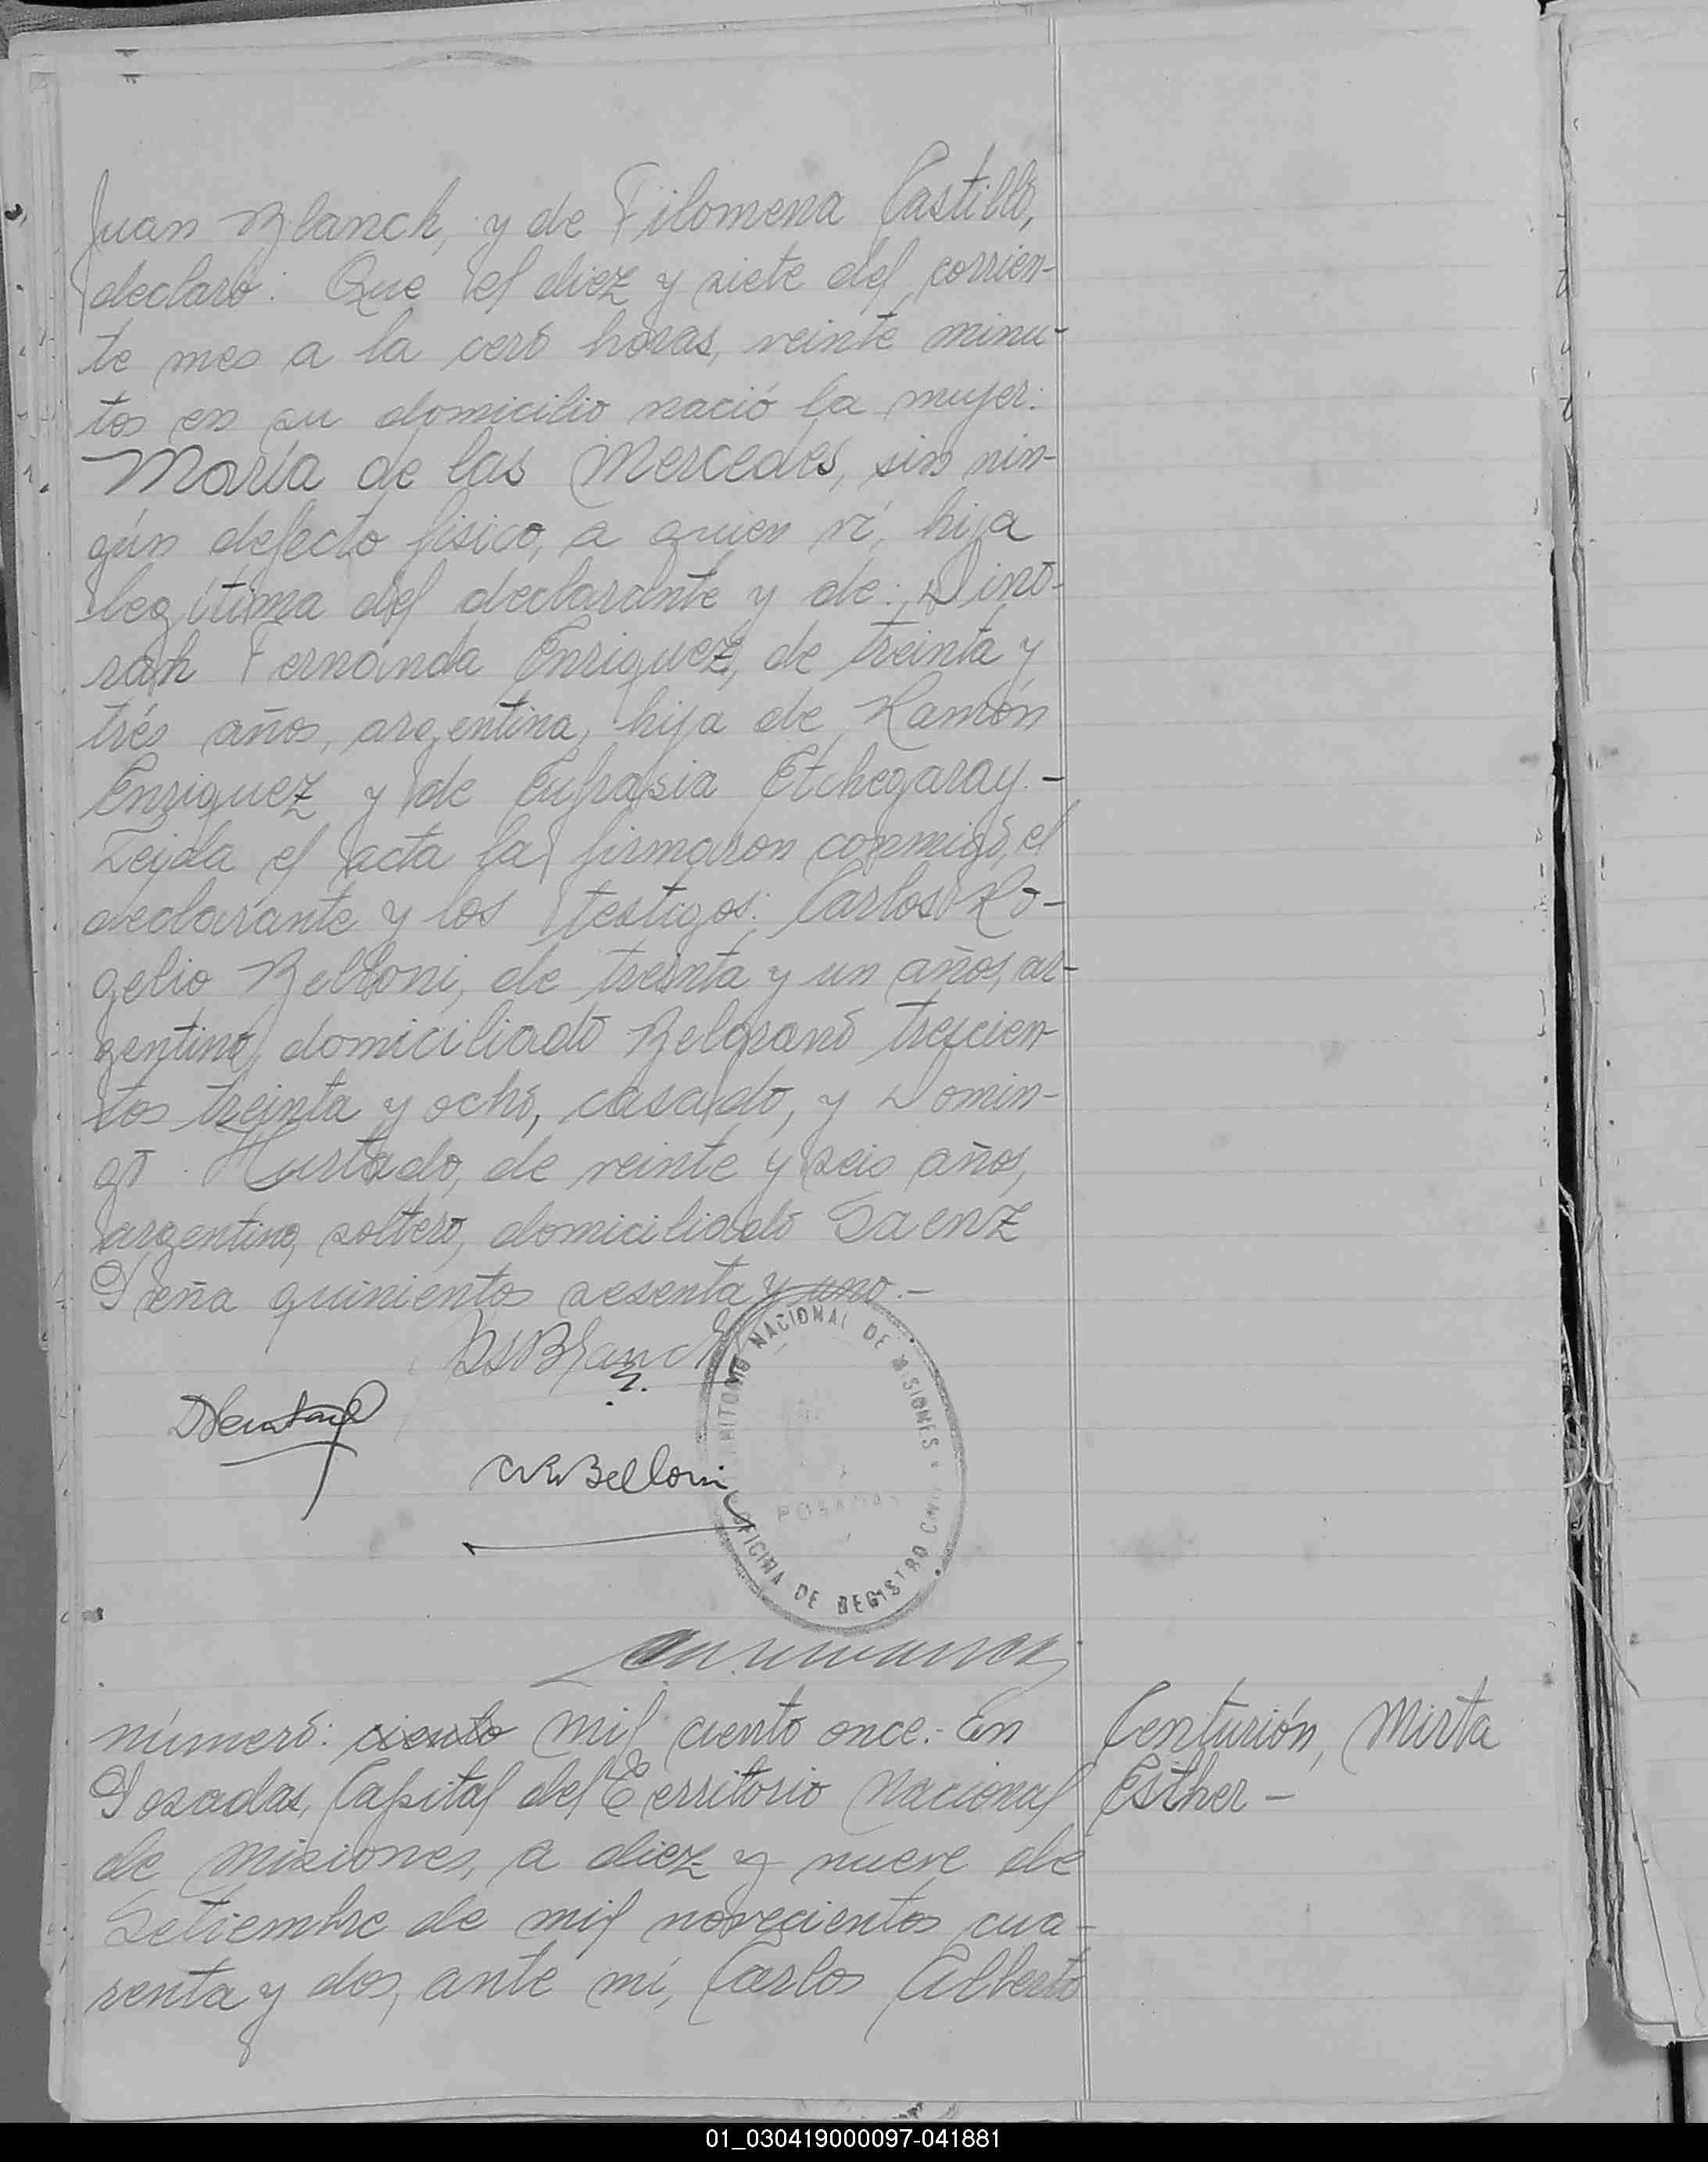 Juan Blanch, y de Filomena Castillo,
declaró: Que el diez y siete del corrien-
te mes a la cero horas, veinte minu-
tos en su domicilio nació la mujer:
María de las Mercedes, sin nin-
gún defecto fisico, a quien ví, hija
legítima del declarante y de: Dino-
rah Fernanda Enriquez, de treinta y
trés años, argentina, hija de Ramón
Enriquez y de Eufrasia Etchegaray.-
Leida el acta la firmaron conmigo, el
declarante y los testigos: Carlos Ro-
gelio Belloni, de treinta y un años, ar-
gentino, domiciliado Belgrano trescien-
tos treinta y ocho, casado, y Domin-
go Hurtado, de veinte y seis años,
argentino, soltero, domiciliado Saenz
Peña quinientos sesenta y uno.-
Blanch
DHurtado
CRBelloni
TERRITORIO NACIONAL DE MISIONES
POSADAS
OFICINA DE REGISTRO CIVIL
número: ciento mil ciento once.- En
Posadas, Capital del Territorio Nacional
de Misiones, a diez y nueve de
Setiembre de mil novecientos cua-
renta y dos, ante mí, Carlos Alberto
Centurión, Mirta
Esther -
01_030419000097-041881